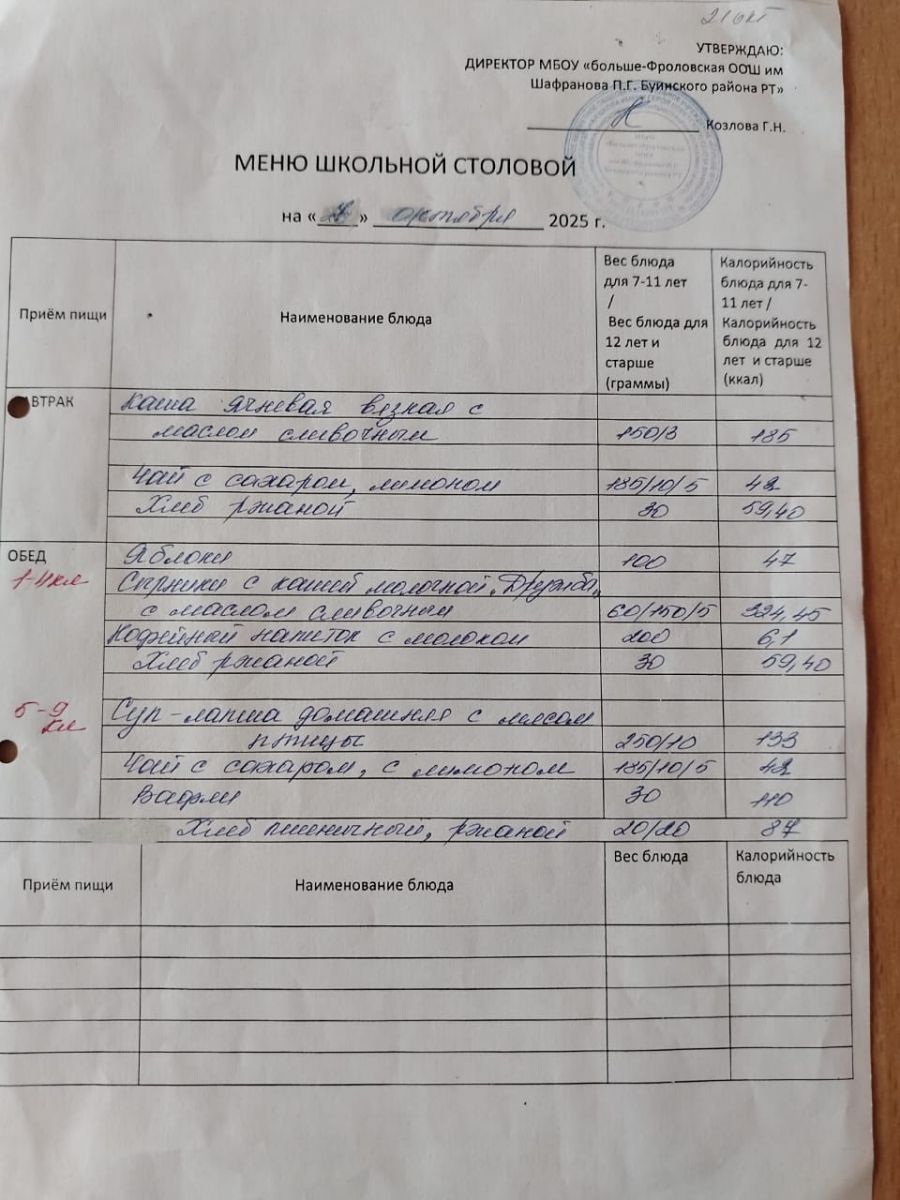 21 окт
УТВЕРЖДАЮ:
ДИРЕКТОР МБОУ «больше-Фроловская ООШ им
Шафранова П.Г. Буинского района РТ»
Козлова Г.Н.
МЕНЮ ШКОЛЬНОЙ СТОЛОВОЙ
на «__» октября 2025 г.
Приём пищи Наименование блюда Вес блюда для 7-11 лет / Вес блюда для 12 лет и старше (граммы) Калорийность блюда для 7-11 лет / Калорийность блюда для 12 лет и старше (ккал)
АВТРАК Каша ячневая вязкая с
маслом сливочным 150/3 185
Чай с сахаром, лимоном 185/10/5 42
Хлеб ржаной 30 59,40
ОБЕД Яблоки 100 47
1-4 кл Сырники с кашей молочной "Дружба"
с маслом сливочным 60/150/5 324,45
Кофейный напиток с молоком 200 6,1
Хлеб ржаной 30 59,40
5-9 кл Суп-лапша домашняя с мясом
птицы 250/10 133
Чай с сахаром, с лимоном 185/10/5 42
Вафли 30 110
Хлеб пшеничный, ржаной 20/20 87
Приём пищи Наименование блюда Вес блюда Калорийность блюда